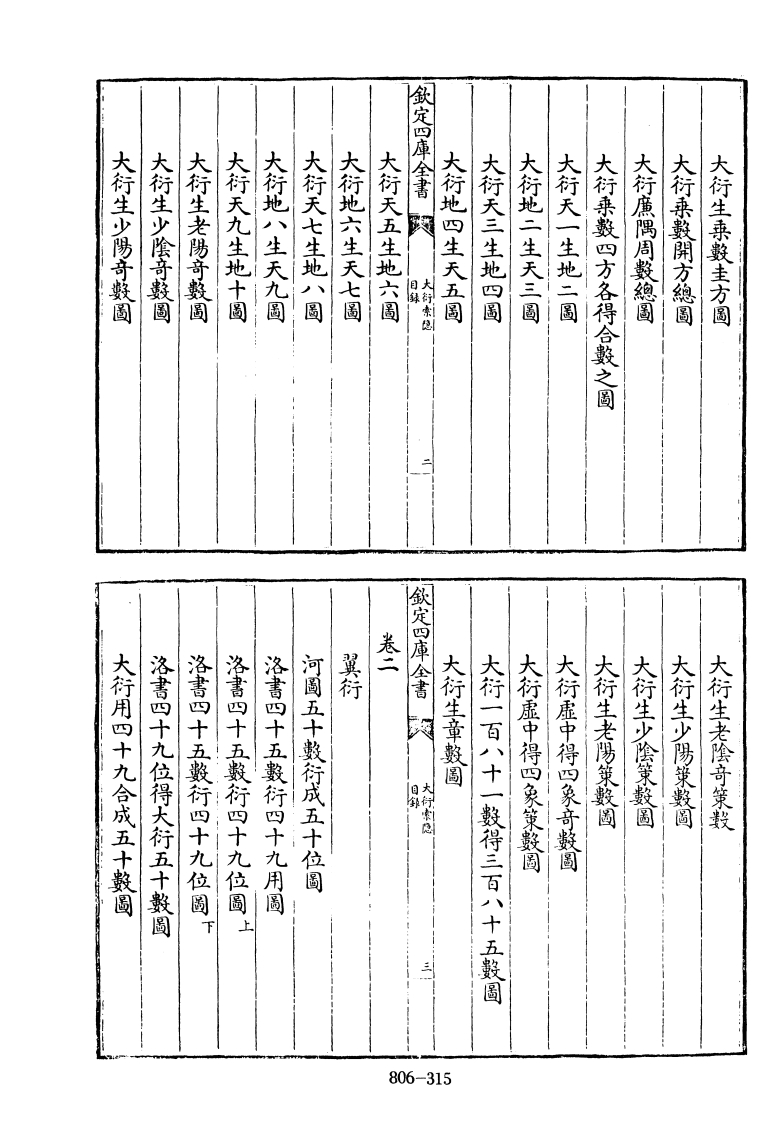 大衍生乘數圭方圖
大衍乘數開方總圖
大衍廉隅周數總圖
大衍乘數四方各得合數之圖
大衍天一生地二圖
大衍地二生天三圖
大衍天三生地四圖
大衍地四生天五圖
欽定四庫全書
大衍索隠
目録
二
大衍天五生地六圖
大衍地六生天七圖
大衍天七生地八圖
大衍地八生天九圖
大衍天九生地十圖
大衍生老陽奇數圖
大衍生少陰奇數圖
大衍生少陽奇數圖
大衍生老陰奇策數
大衍生少陽策數圖
大衍生少陰策數圖
大衍生老陽策數圖
大衍虛中得四象奇數圖
大衍虛中得四象策數圖
大衍一百八十一數得三百八十五數圖
大衍生章數圖
欽定四庫全書
大衍索隠
目録
三
卷二
翼衍
河圖五十數衍成五十位圖
洛書四十五數衍四十九用圖
洛書四十五數衍四十九位圖上
洛書四十五數衍四十九位圖下
洛書四十九位得大衍五十數圖
大衍用四十九合成五十數圖
806-315